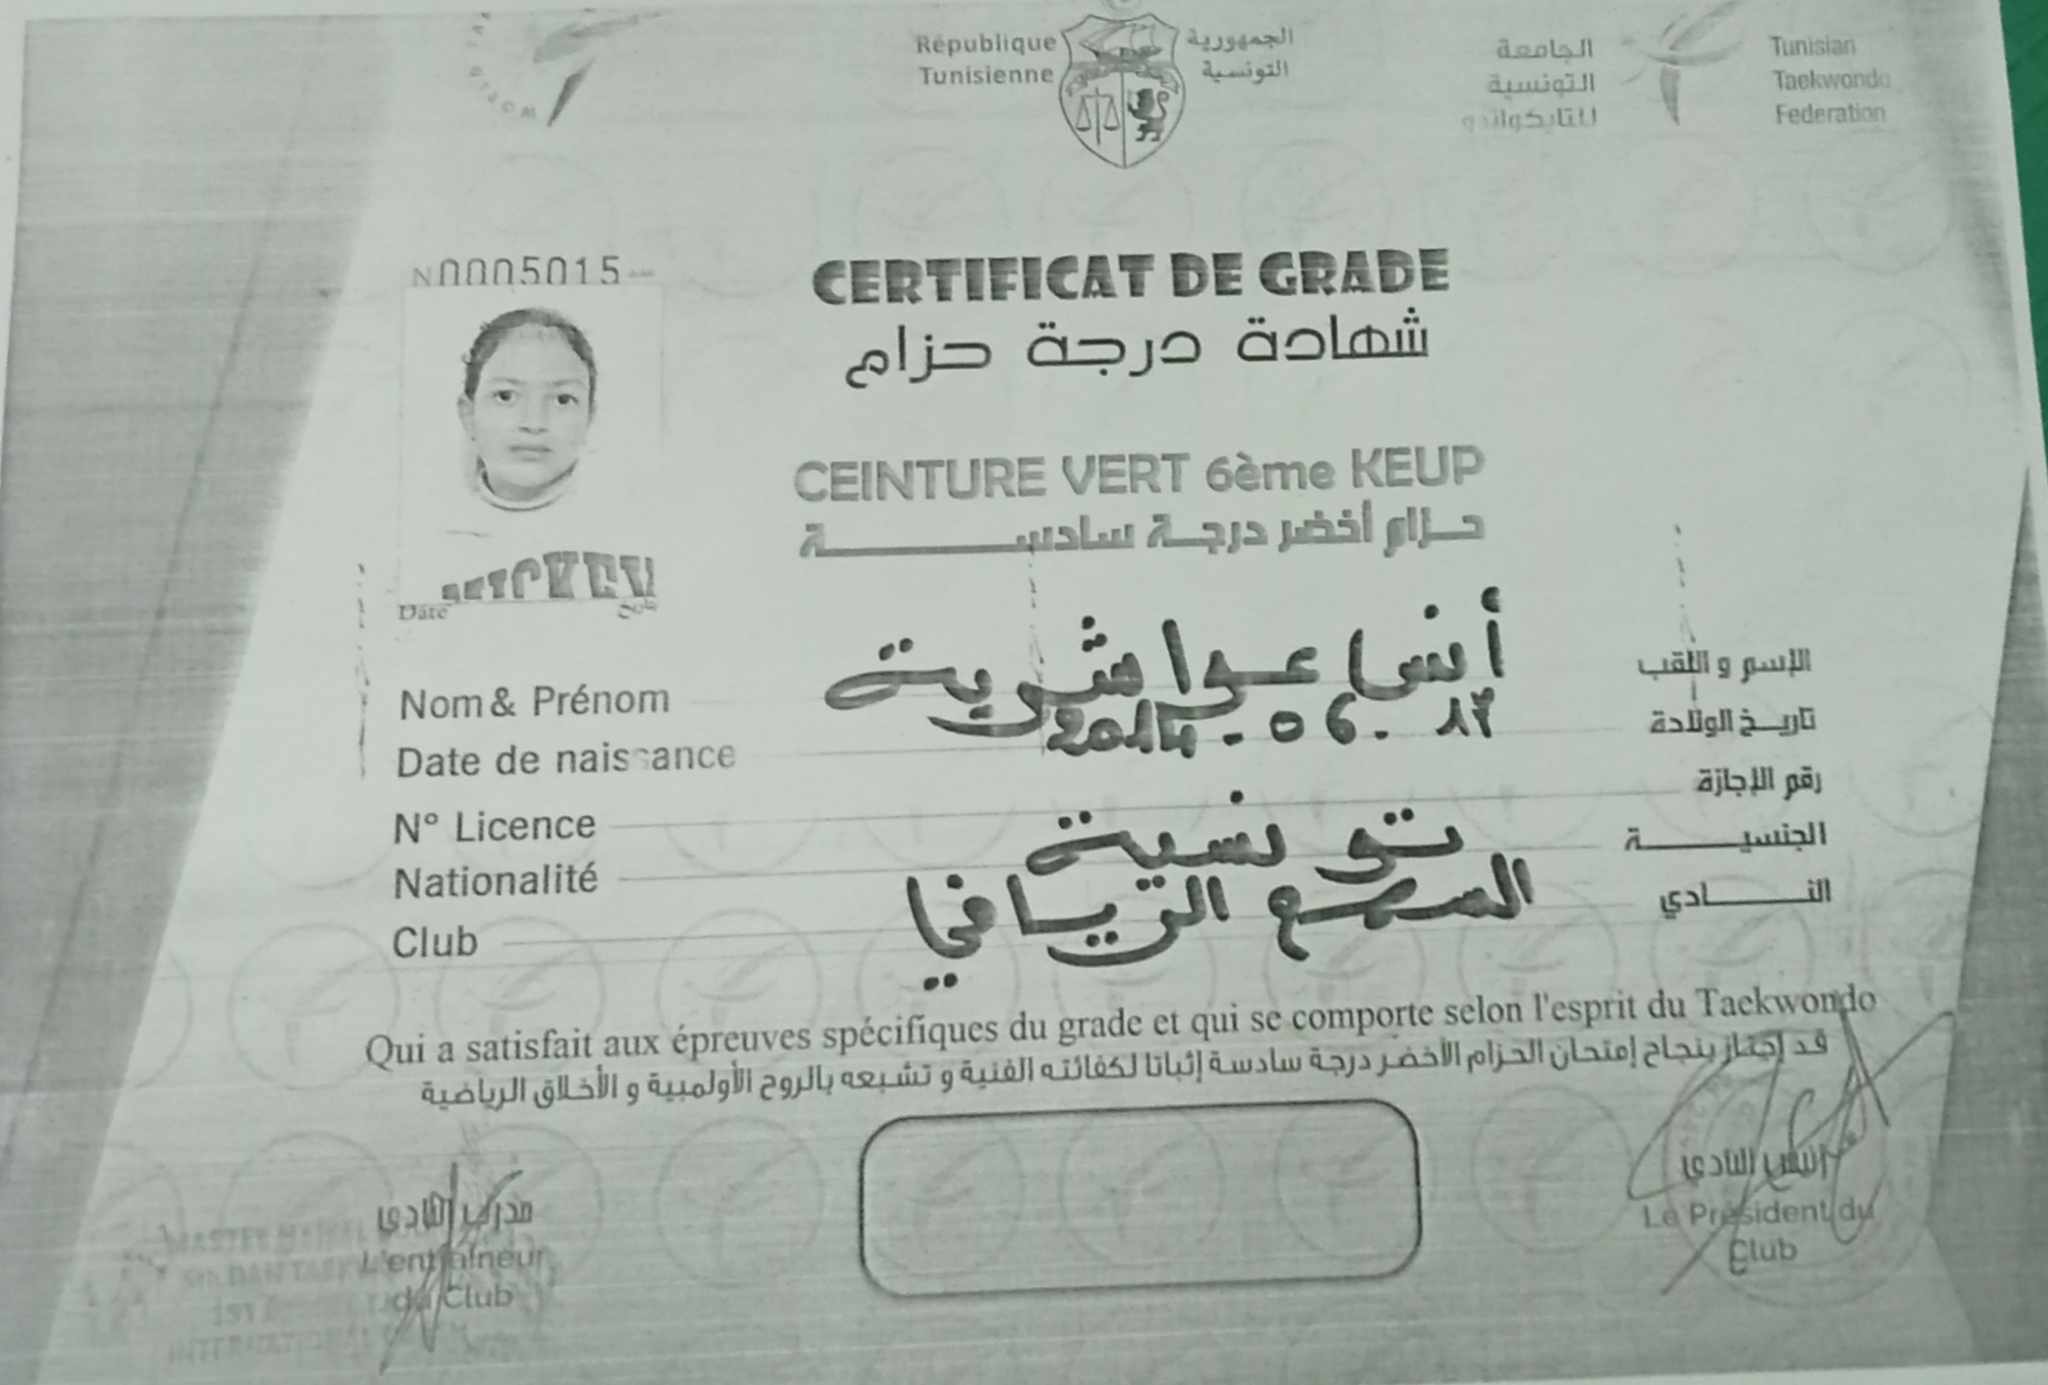 République Tunisienne
الجمهورية التونسية
الجامعة التونسية للتايكواندو
Tunisian Taekwondo Federation
N0005015
CERTIFICAT DE GRADE
شهادة درجة حزام
CEINTURE VERT 6ème KEUP
حزام أخضر درجة سادسة
Date
Nom & Prénom أنس عواشرية الإسم و اللقب
Date de naissance تاريخ الولادة
N° Licence رقم الإجازة
Nationalité تونسية الجنسية
Club النادي
Qui a satisfait aux épreuves spécifiques du grade et qui se comporte selon l'esprit du Taekwondo
قد إجتاز بنجاح إمتحان الحزام الأخضر درجة سادسة إثباتا لكفائته الفنية و تشبعه بالروح الأولمبية و الأخلاق الرياضية
مدرب النادي
L'entraîneur du Club
رئيس النادي
Le Président du Club